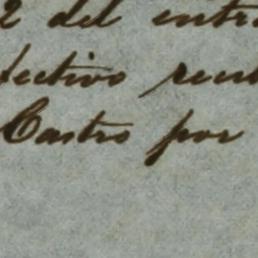 2 del entr
fectivo reci
Castro por